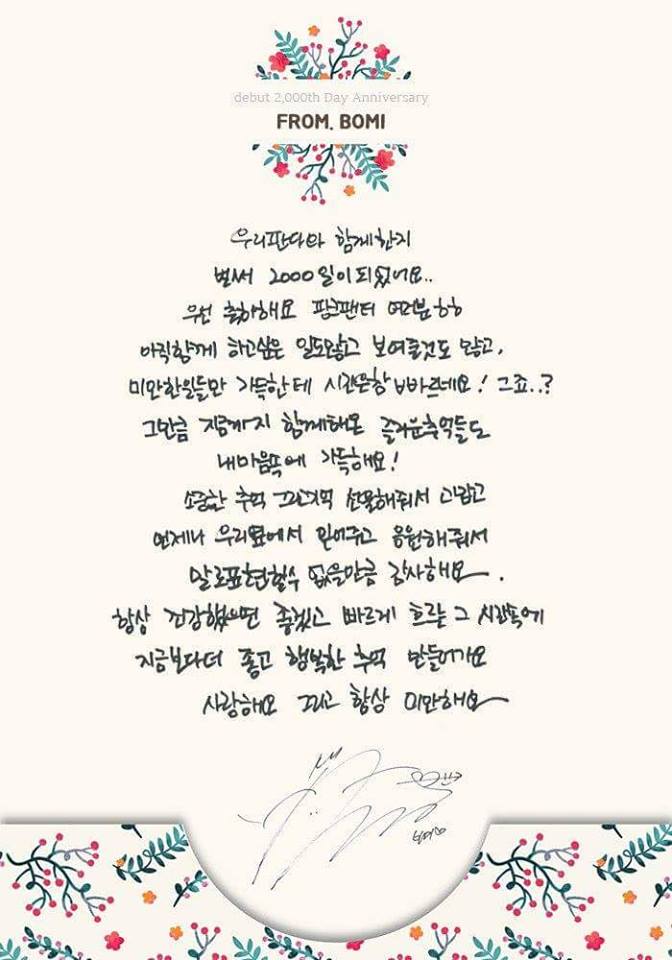 debut 2,000th Day Anniversary
FROM. BOMI
우리판다와 함께한지
벌써 2000일이 되었어요..
우선 축하해요 핑크팬더 여러분 ㅎㅎ
아직함께 하고싶은 일도많고 보여줄것도 많고,
미안한일들만 가득한데 시간은참 빠르네요! 그죠..?
그만큼 지금까지 함께해온 즐거운추억들도
내마음속에 가득해요!
소중한 추억 그리고기억 선물해줘서 고맙고
언제나 우리옆에서 믿어주고 응원해줘서
말로표현할수 없을만큼 감사해요.
항상 건강했으면 좋겠고 빠르게 흐르는 그 시간속에
지금보다더 좋고 행복한 추억 만들어가요
사랑해요 그리고 항상 미안해요